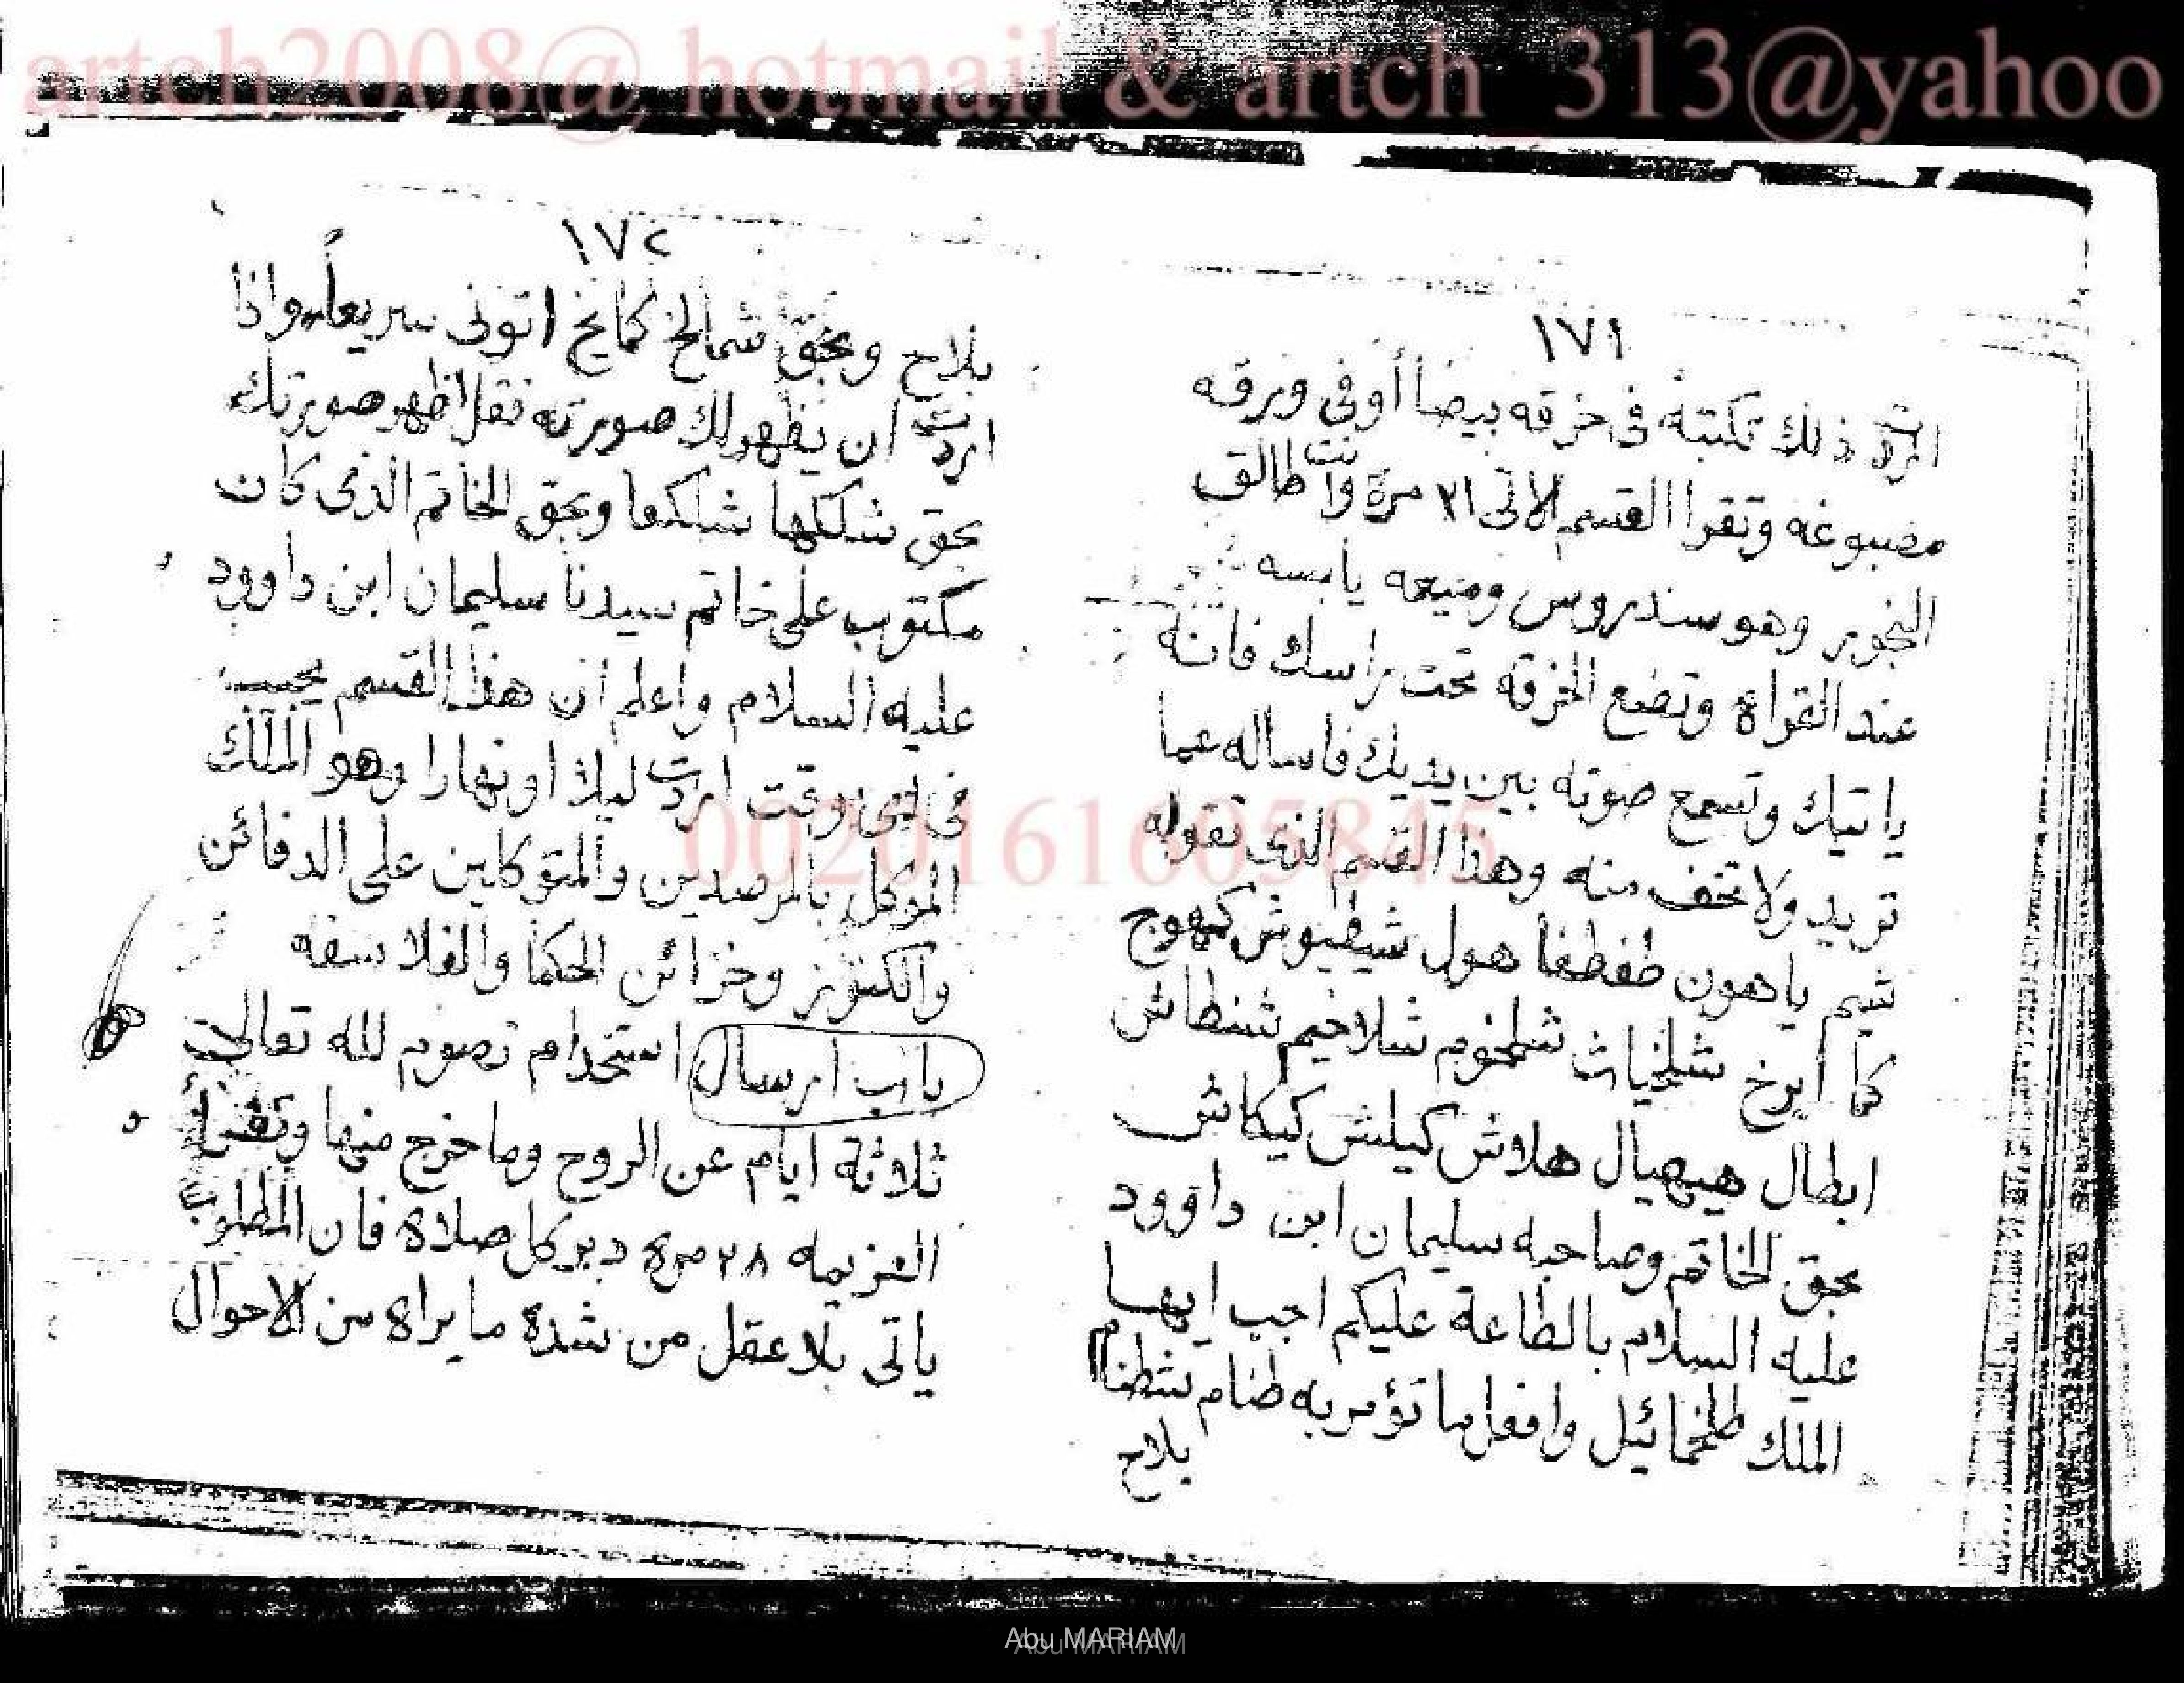 artch2008@ hotmail & artch_313@yahoo
١٧١
اردت ذلك تكتبه فى خرقه بيضا أوفى ورقه
مصبوغه وتقرا القسم الاتى ٢١ مرة وانت طالق
البخور وهو سندروس وميعه يابسه
عند القراة وتضع الخرقه تحت راسك فانه
ياتيك وتسمع صوته بين يديك فاساله عما
تريد ولا تخف منه وهذا القسم الذى تقوله
شيم ياهون طفطفا هول شيطيوش كهوج
كما ايرخ شلخياث شلخوم شلاخيم شنطاش
ابطال هيهيال هلاش كيلش كيكاش
بحق الخاتم وصاحبه سليمان ابن داوود
عليه السلام بالطاعة عليكم اجب ايها
الملك طلخمائيل وافعل ما تؤمر به طنام شطنام
بلاح
١٧٢
بلاح وبحق شمالخ كمايخ اتونى سريعاً واذا
اردت ان يظهر لك صورته فقل اظهر صورتك
بحق شلكها شلكعا وبحق الخاتم الذى كان
مكتوب على خاتم سيدنا سليمان ابن داوود
عليه السلام واعلم ان هذا القسم يجيب
فى اى وقت اردت ليلا او نهارا وهو الملك
الموكل بالمرصدين والمتوكلين على الدفائن
والكنوز وخزائن الحكما والفلاسفه
باب ارسال استخدام تصوم لله تعالى
ثلاثة ايام عن الروح وما خرج منها وتقرا
العزيمه ٢٨ مرة دبر كل صلاة فان المطلوب
ياتى بلا عقل من شدة ما يراه من الاحوال
00201616​05845
Abu MARIAM